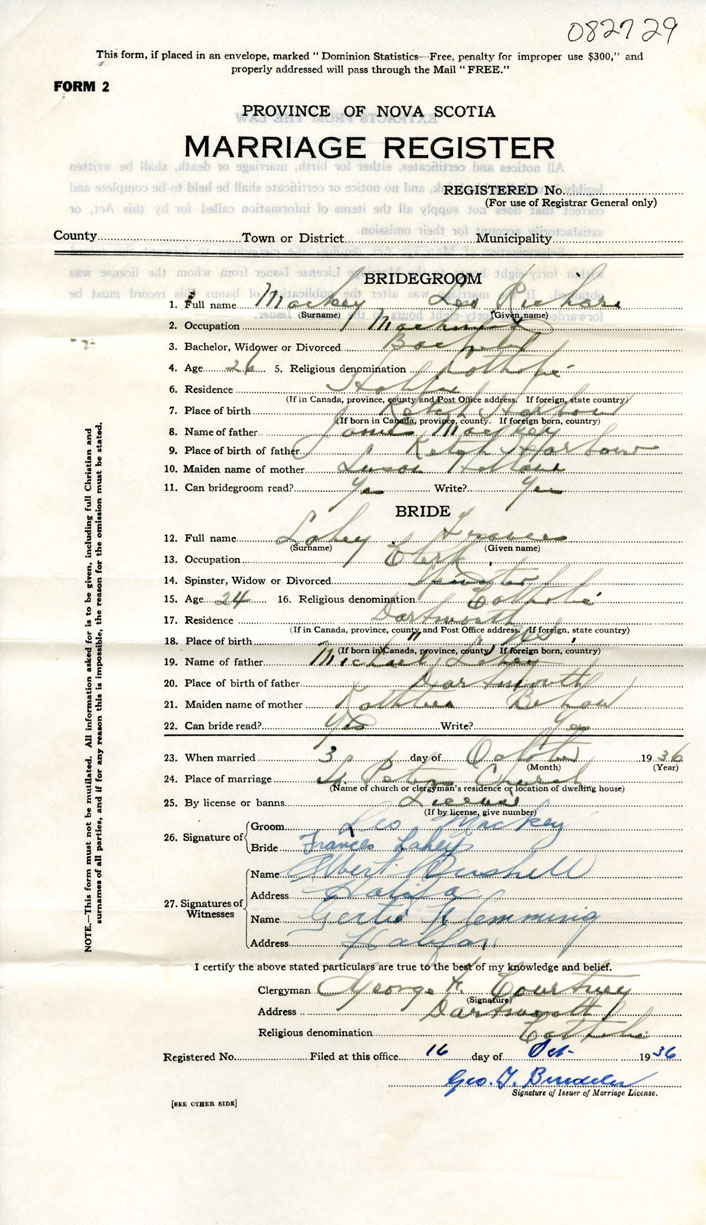 082729
This form, if placed in an envelope, marked "Dominion Statistics—Free, penalty for improper use $300," and
properly addressed will pass through the Mail "FREE."
FORM 2
PROVINCE OF NOVA SCOTIA
MARRIAGE REGISTER
REGISTERED No.
(For use of Registrar General only)
County Town or District Municipality
BRIDEGROOM
1. Full name Mackey Leo Richard
(Surname) (Given name)
2. Occupation Machinist
3. Bachelor, Widower or Divorced Bachelor
4. Age 26 5. Religious denomination Catholic
6. Residence Halifax
(If in Canada, province, county and Post Office address. If foreign, state country)
7. Place of birth Ketch Harbour
(If born in Canada, province, county. If foreign born, country)
8. Name of father James Mackey
9. Place of birth of father Ketch Harbour
10. Maiden name of mother Susan
11. Can bridegroom read? Yes Write? Yes
BRIDE
12. Full name Lahey Frances
(Surname) (Given name)
13. Occupation Clerk
14. Spinster, Widow or Divorced Spinster
15. Age 24 16. Religious denomination Catholic
17. Residence Dartmouth
(If in Canada, province, county and Post Office address. If foreign, state country)
18. Place of birth " N.S.
(If born in Canada, province, county. If foreign born, country)
19. Name of father Michael Lahey
20. Place of birth of father Dartmouth
21. Maiden name of mother Kathleen
22. Can bride read? Yes Write? Yes
23. When married 3 day of October 1936
(Month) (Year)
24. Place of marriage St Peters Church
(Name of church or clergyman's residence or location of dwelling house)
25. By license or banns License
(If by license, give number)
26. Signature of Groom Leo Mackey
Bride Frances Lahey
27. Signatures of Witnesses
Name Albert Bushell
Address Halifax
Name Gertie Flemming
Address Halifax
I certify the above stated particulars are true to the best of my knowledge and belief.
Clergyman George F. Courtney
(Signature)
Address Dartmouth
Religious denomination Catholic
Registered No. Filed at this office 16 day of Oct. 1936
Geo. T.
Signature of Issuer of Marriage License.
[SEE OTHER SIDE]
NOTE.—This form must not be mutilated. All information asked for is to be given, including full Christian and
surnames of all parties, and if for any reason this is impossible, the reason for the omission must be stated.